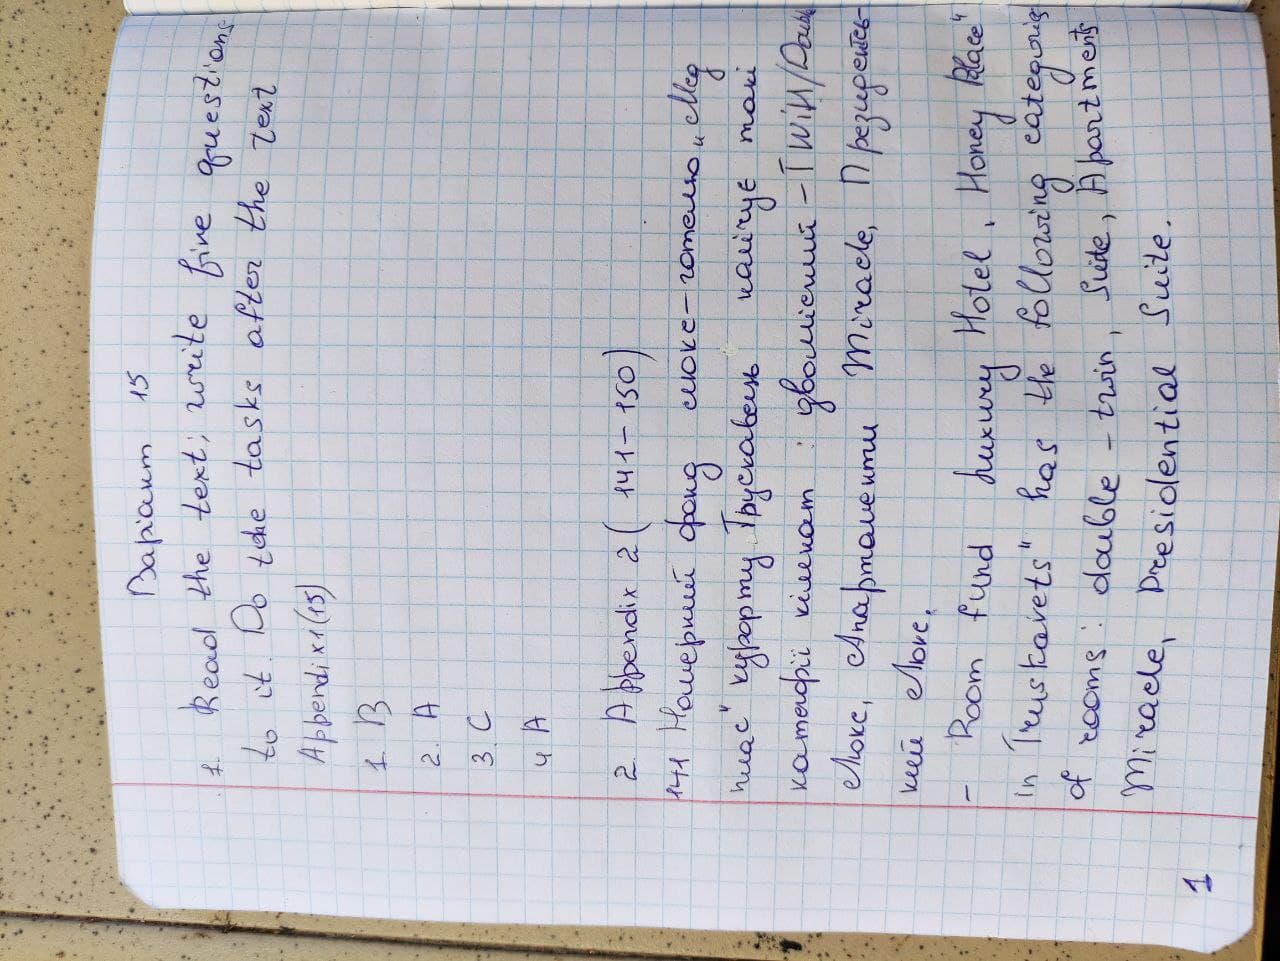 Варіант 15
1. Read the text; write five questions
to it. Do the tasks after the text
Appendix1(15)
1. B
2. A
3. C
4 A
2. Appendix 2 (141-150)
141 Номерний фонд люкс-готелю „Мед
плас" курорту Трускавець налічує такі
категорії кімнат : двомісний - TWiH/Double
Люкс, Апартаменти Miracle, Президентсь-
кий Люкс.
- Room fund Luxury Hotel „Honey Place"
in Truskavets" has the following categories
of rooms: double - twin, Suite, Apartments
Miracle, Presidential Suite.
1